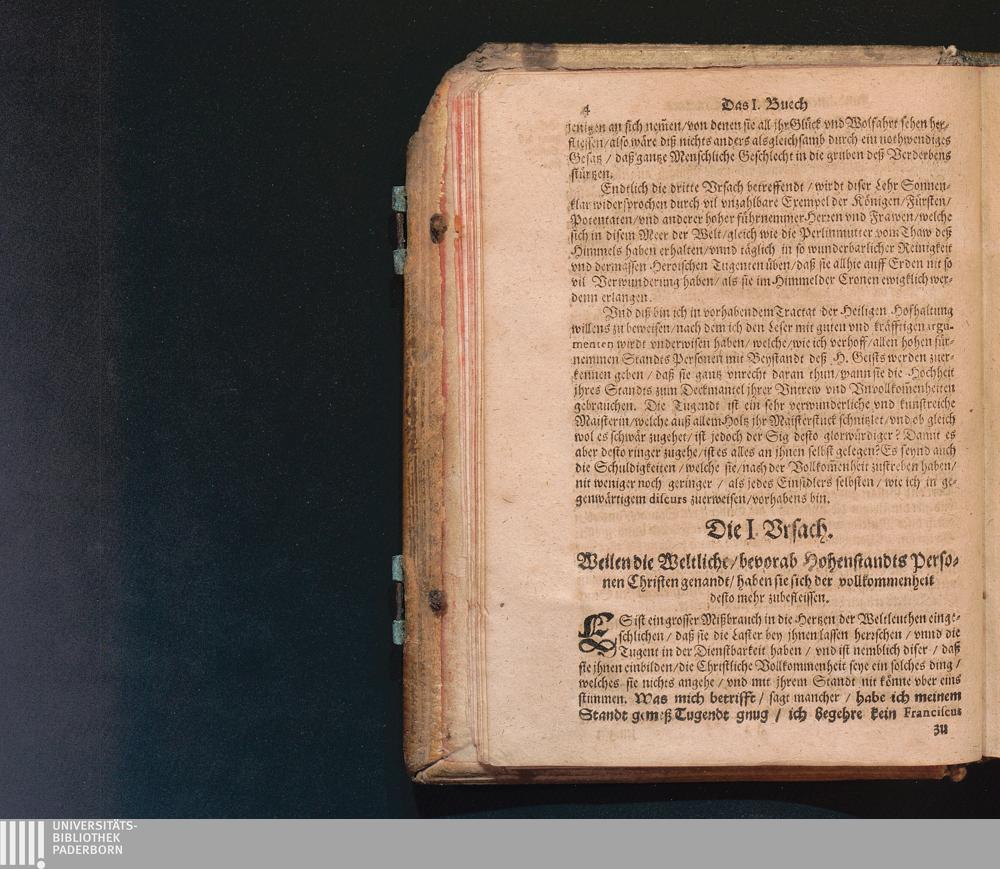 4
Das I. Buech
jenigen an sich nem̃en/von denen sie all jhr Glück vnd Wolfahrt sehen her-
fliessen/also wäre diß nichts anders als gleichsamb durch ein nothwendiges
Gesatz / daß gantze Menschliche Geschlecht in die gruben deß Verderbens
stürtzen.
Endtlich die dritte Vrsach betreffendt / wirdt diser Lehr Sonnen-
klar widersprochen durch vil vnzahlbare Exempel der Königen/Fürsten/
Potentaten/vnd anderer hoher führnemmer Herzen vnd Frawen/welche
sich in disem Meer der Welt/gleich wie die Perlinmutter vom Thaw deß
Himmels haben erhalten/vnnd täglich in so wunderbarlicher Reinigkeit
vnd dermassen Heroischen Tugenten üben/daß sie allhie auff Erden nit so
vil Verwunderung haben/ als sie im Himmel der Cronen ewigklich wer-
denn erlangen.
Vnd diß bin ich in vorhabendem Tractat der Heiligen Hofhaltung
willens zu beweisen/nach dem ich den Leser mit guten vnd kräfftigen argu-
menten wirdt vnderwisen haben/welche/wie ich verhoff/allen hohen für-
nemmen Standts Personen mit Beystandt deß H. Geists werden zuer-
kennen geben / daß sie gantz vnrecht daran thun/wann sie die Hochheit
jhres Standts zum Deckmantel jhrer Vntrew vnd Vnvollkom̃enheiten
gebrauchen. Die Tugendt ist ein sehr verwunderliche vnd kunstreiche
Maisterin/welche auß allem Holtz jhr Maisterstuck schnitzlet/vnd ob gleich
wol es schwär zugehet/ist jedoch der Sig desto glorwürdiger? Damit es
aber desto ringer zugehe/ist es alles an jhnen selbst gelegen?Es seynd auch
die Schuldigkeiten/welche sie/nach der Vollkom̃enheit zustreben haben/
nit weniger noch geringer / als jedes Einsidlers selbsten / wie ich in ge-
genwärtigem discurs zuerweisen/vorhabens bin.
Die I. Vrsach.
Weilen die Weltliche/bevorab Hohenstandts Perso-
nen Christen genandt/haben sie sich der vollkommenheit
desto mehr zubefleissen.
ES ist ein grosser Mißbrauch in die Hertzen der Weltleuthen einge-
schlichen / daß sie die Laster bey jhnen lassen herrschen / vnnd die
Tugent in der Dienstbarkeit haben / vnd ist nemblich diser / daß
sie jhnen einbilden/die Christliche Vollkommenheit seye ein solches ding /
welches sie nichts angehe / vnd mit jhrem Standt nit könne vber eins
stimmen. Was mich betrifft / sagt mancher / habe ich meinem
Standt gemeß Tugendt gnug / ich begehre kein Franciscus
zu
UNIVERSITÄTS-
BIBLIOTHEK
PADERBORN